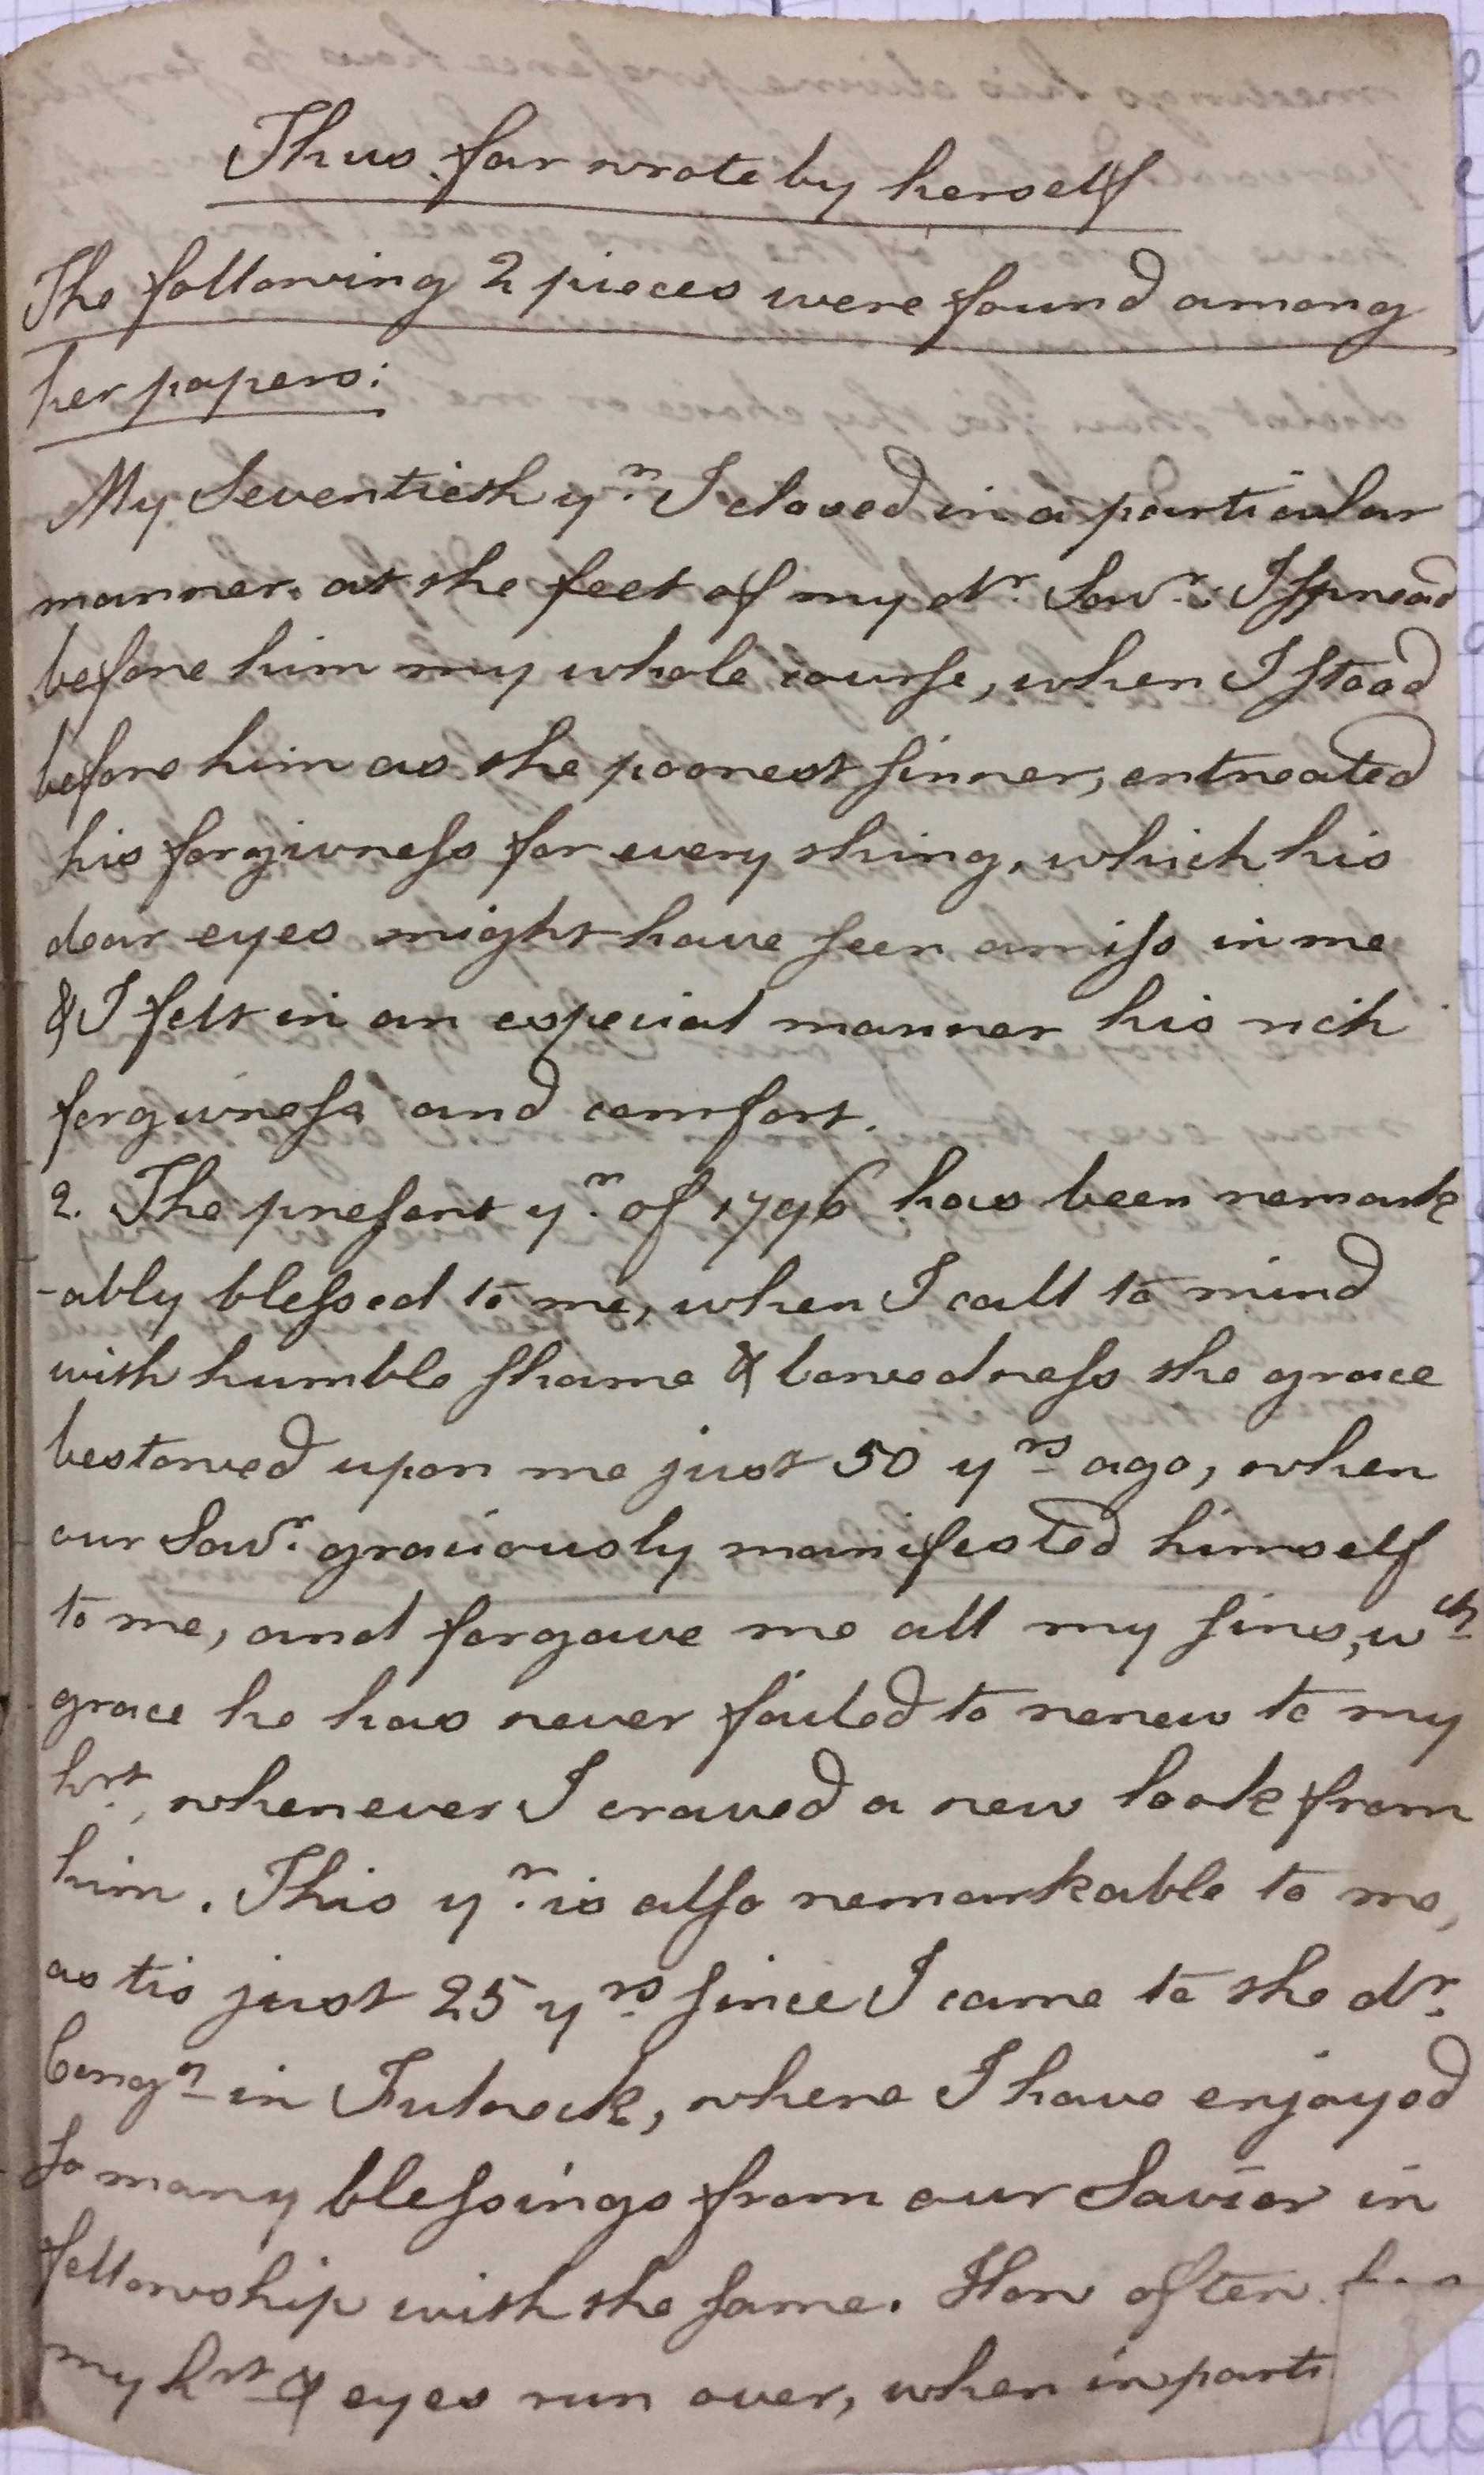 Thus far wrote by herself
The following 2 pieces were found among
her papers:
My Seventieth yr. I closed in a particular
manner. at the feet of my dr. Savr.: I spread
before him my whole course, when I stood
before him as the poorest sinner, entreated
his forgivness for every thing, which his
dear eyes might have seen amiss in me
& I felt in an especial manner his rich
forgivness and comfort.
2. The present yr. of 1796 has been remark
-ably blessed to me, when I call to mind
with humble shame & bowedness the grace
bestowed upon me just 50 yrs ago, when
our Savr. graciously manifested himself
to me, and forgave me all my sins, wch
grace he has never failed to renew to my
hrt., whenever I craved a new look from
him. This yr. is also remarkable to me,
as tis just 25 yrs. since I came to the dr.
Congn in Fulneck, where I have enjoyed
so many blessings from our Savior in
fellowship with the same. How often
my hrt & eyes run over, when in parti